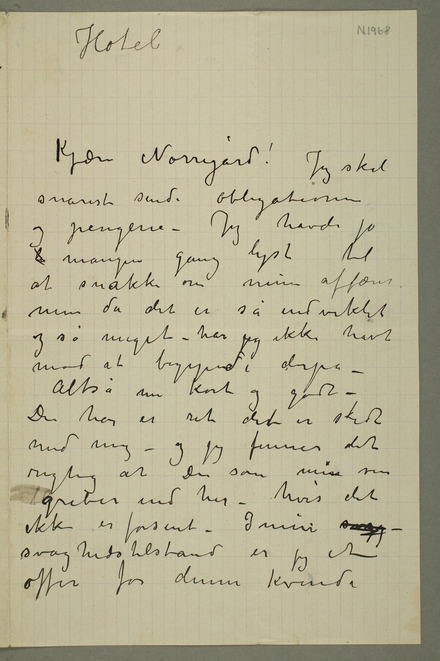 N1968
Hotel
Kjære Nørregård! Jeg skal
snarest sende obligationen
og pengene – Jeg havde jo
mangen gang lyst til
at snakke om min affære
men da det er så indviklet
og så meget – har jeg ikke havt
mod at begynde derpa –
Altså nu kort og godt –
Du har er ret det er skedt
med mig – og jeg finner det
rigtig at Du som min ven
griber ind her – hvis det
ikke er forsent – I min
svaghedstilstand er jeg et
offer for denne kvinde